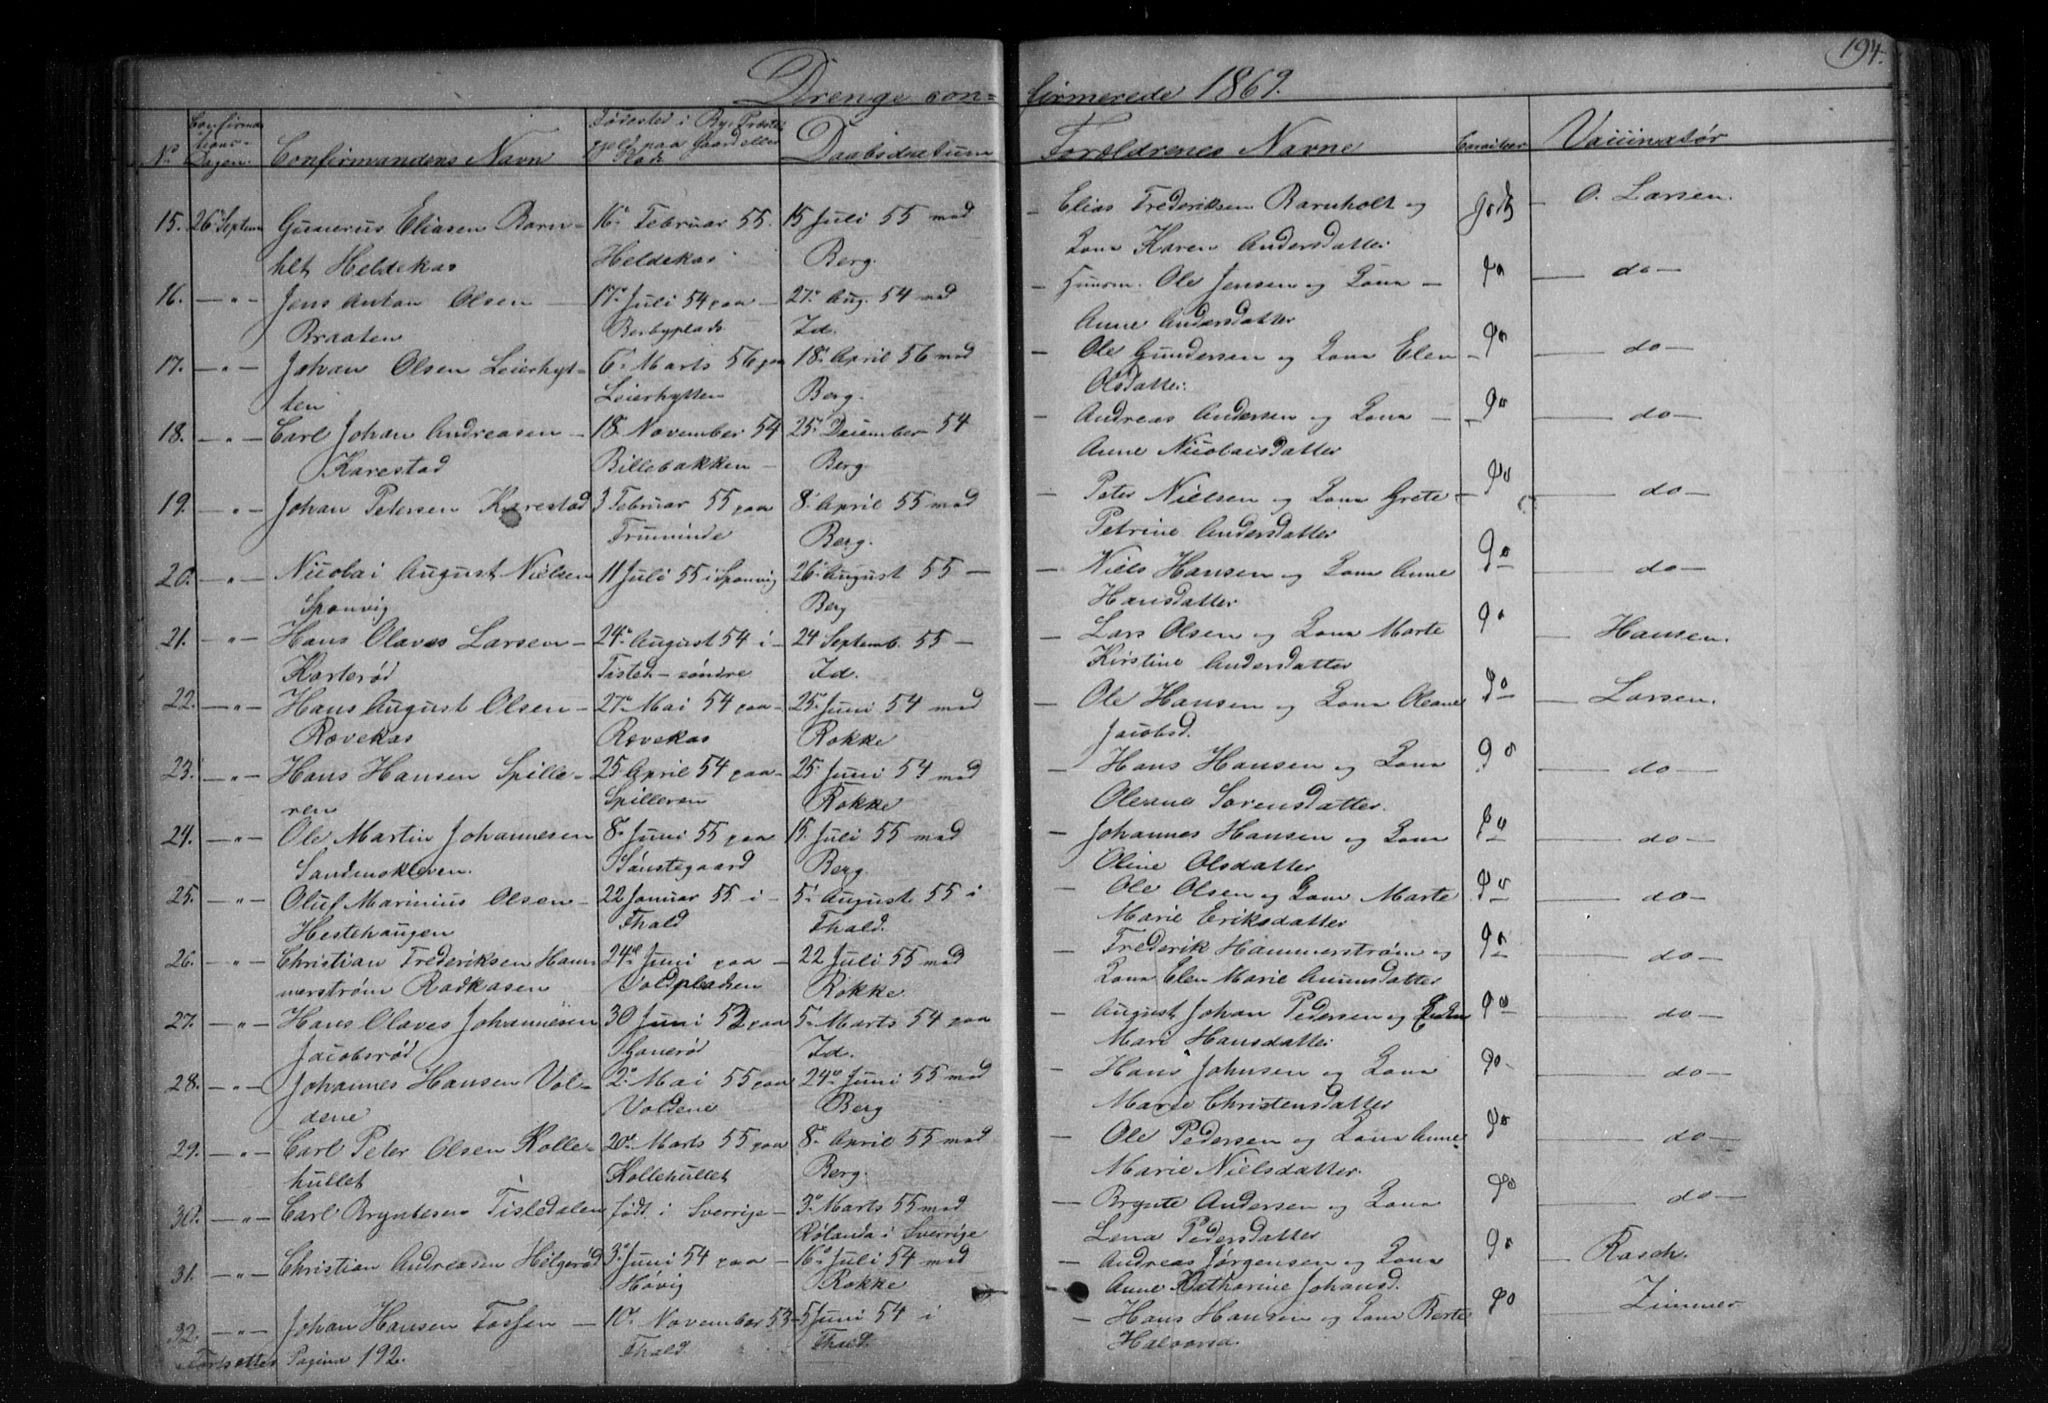 194.
Drenge con= firmerede 1869.
No Confirmations-Dagen. Confirmandens Navn Fødested i By, Præstegjeld paa Gaard eller Plads Daabsdatum Forældrenes Navne Vaccinatør
15. 26 Septem Gunerus Eliasen Barn- 16 Februar 55. 15 Juli 55 med — Elias Frederiksen Barnholt og godt — O. Larsen.
hlt Heldekas Heldekas Berg. Kona Karen Andersdatter
16. —"— Jens Anton Olsen — 17 Juli 54 paa — 27 Aug. 54 med — Huusm. Ole Jensen og Kona — do — do —
Braaten Berbyplads Id. Anne Andersdatter
17. —"— Johan Olsen Leierhyt- 6 Marts 56 paa 18 April 56 med — Ole Gundersen og Kona Elen — do — do —
ten Leierhytten Berg. Olsdatter.
18. —"— Carl Johan Andreasen — 18 November 54 25 December 54 — Andreas Andersen og Kona — do — do —
Karestad Billebakken — Berg. Anne Nicolaisdatter
19. —"— Johan Petersen Karestad 3 Februar 55 paa 8 April 55 med — Peter Nielsen og Kona Grete — do — do —
Berg. Petrine Andersdatter
20. —"— Nicolai August Nielsen 11 Juli 55 i Sponvig 26 August 55 — — Niels Hansen og Kona Anne do — do —
Sponvig Berg Hansdatter
21. —"— Hans Olaves Larsen — 24 August 54 i — 24 Septemb. 55 — — Lars Olsen og Kona Marte do — Hansen.
Korterød Tisted — søndre Id. Kirstine Andersdatter
22. —"— Hans August Olsen — 27 Mai 54 paa — 25 Juni 54 med — Ole Hansen og Kona Oleane do — Larsen.
Rævekas Rævekas Rokke Jacobsd.
23. —"— Hans Hansen Spille- 25 April 54 paa — 25 Juni 54 med — Hans Hansen og Kona do — do —
ren Spilleren Rokke Oleane Sørensdatter.
24. —"— Ole Martin Johannesen 8 Juni 55 paa 15. Juli 55 med — Johannes Hansen og Kona do — do —
Sandenskleven. Berg. Oline Olsdatter
25. —"— Oluf Marinius Olsen — 22 Januar 55 i — 5 August 55 i — Ole Olsen og Kona Marte do — do —
Hestehaugen Fhald Fhald. Marie Eriksdatter
26. —"— Christian Frederiksen Ham- 24 Juni paa — 22 Juli 55 med — Frederik Hammerstrøm og do — do —
merstrøm Radkasen Voldpladsen Rokke. Kona Elen Marie
27. —"— Hans Olaves Johannesen 30 Juni 53 paa 5 Marts 54 paa — August Johan Pedersen og do — do —
Jacobsrød Id. Mari Hansdatter
28. —"— Johannes Hansen Vol- 2 Mai 55 paa 24 Juni 55 med — Hans Johnsen og Kona do — do —
dene Voldene Berg Marie Christensdatter
29. —"— Carl Peter Olsen Kolle- 20 Marts 55 paa 8 April 55 med — Ole Pedersen og Kona Anne do — do —
hullet Kollehullet Berg. Marie Nielsdatter.
30. —"— Carl Bryntesen Tistedalen født i Sverrige — 3 Marts 55 med — Brynte Andersen og Kona do — do —
Rølanda i Sverrige Lena Pedersdatter
31. —"— Christian Andreasen Helgerød 3 Juni 54 paa — 16 Juli 54 med — Andreas Jørgensen og Kona do — Rasch.
Høvig Rokke Anne Katharine Johansd.
32. —"— Johan Hansen Fossen — 10 November 53 — 5 Juni 54 i — Hans Hansen og Kona Berte do — Zimmer
Fortsættes Pagina 192. Fhald. Fhald. Halvorsd.